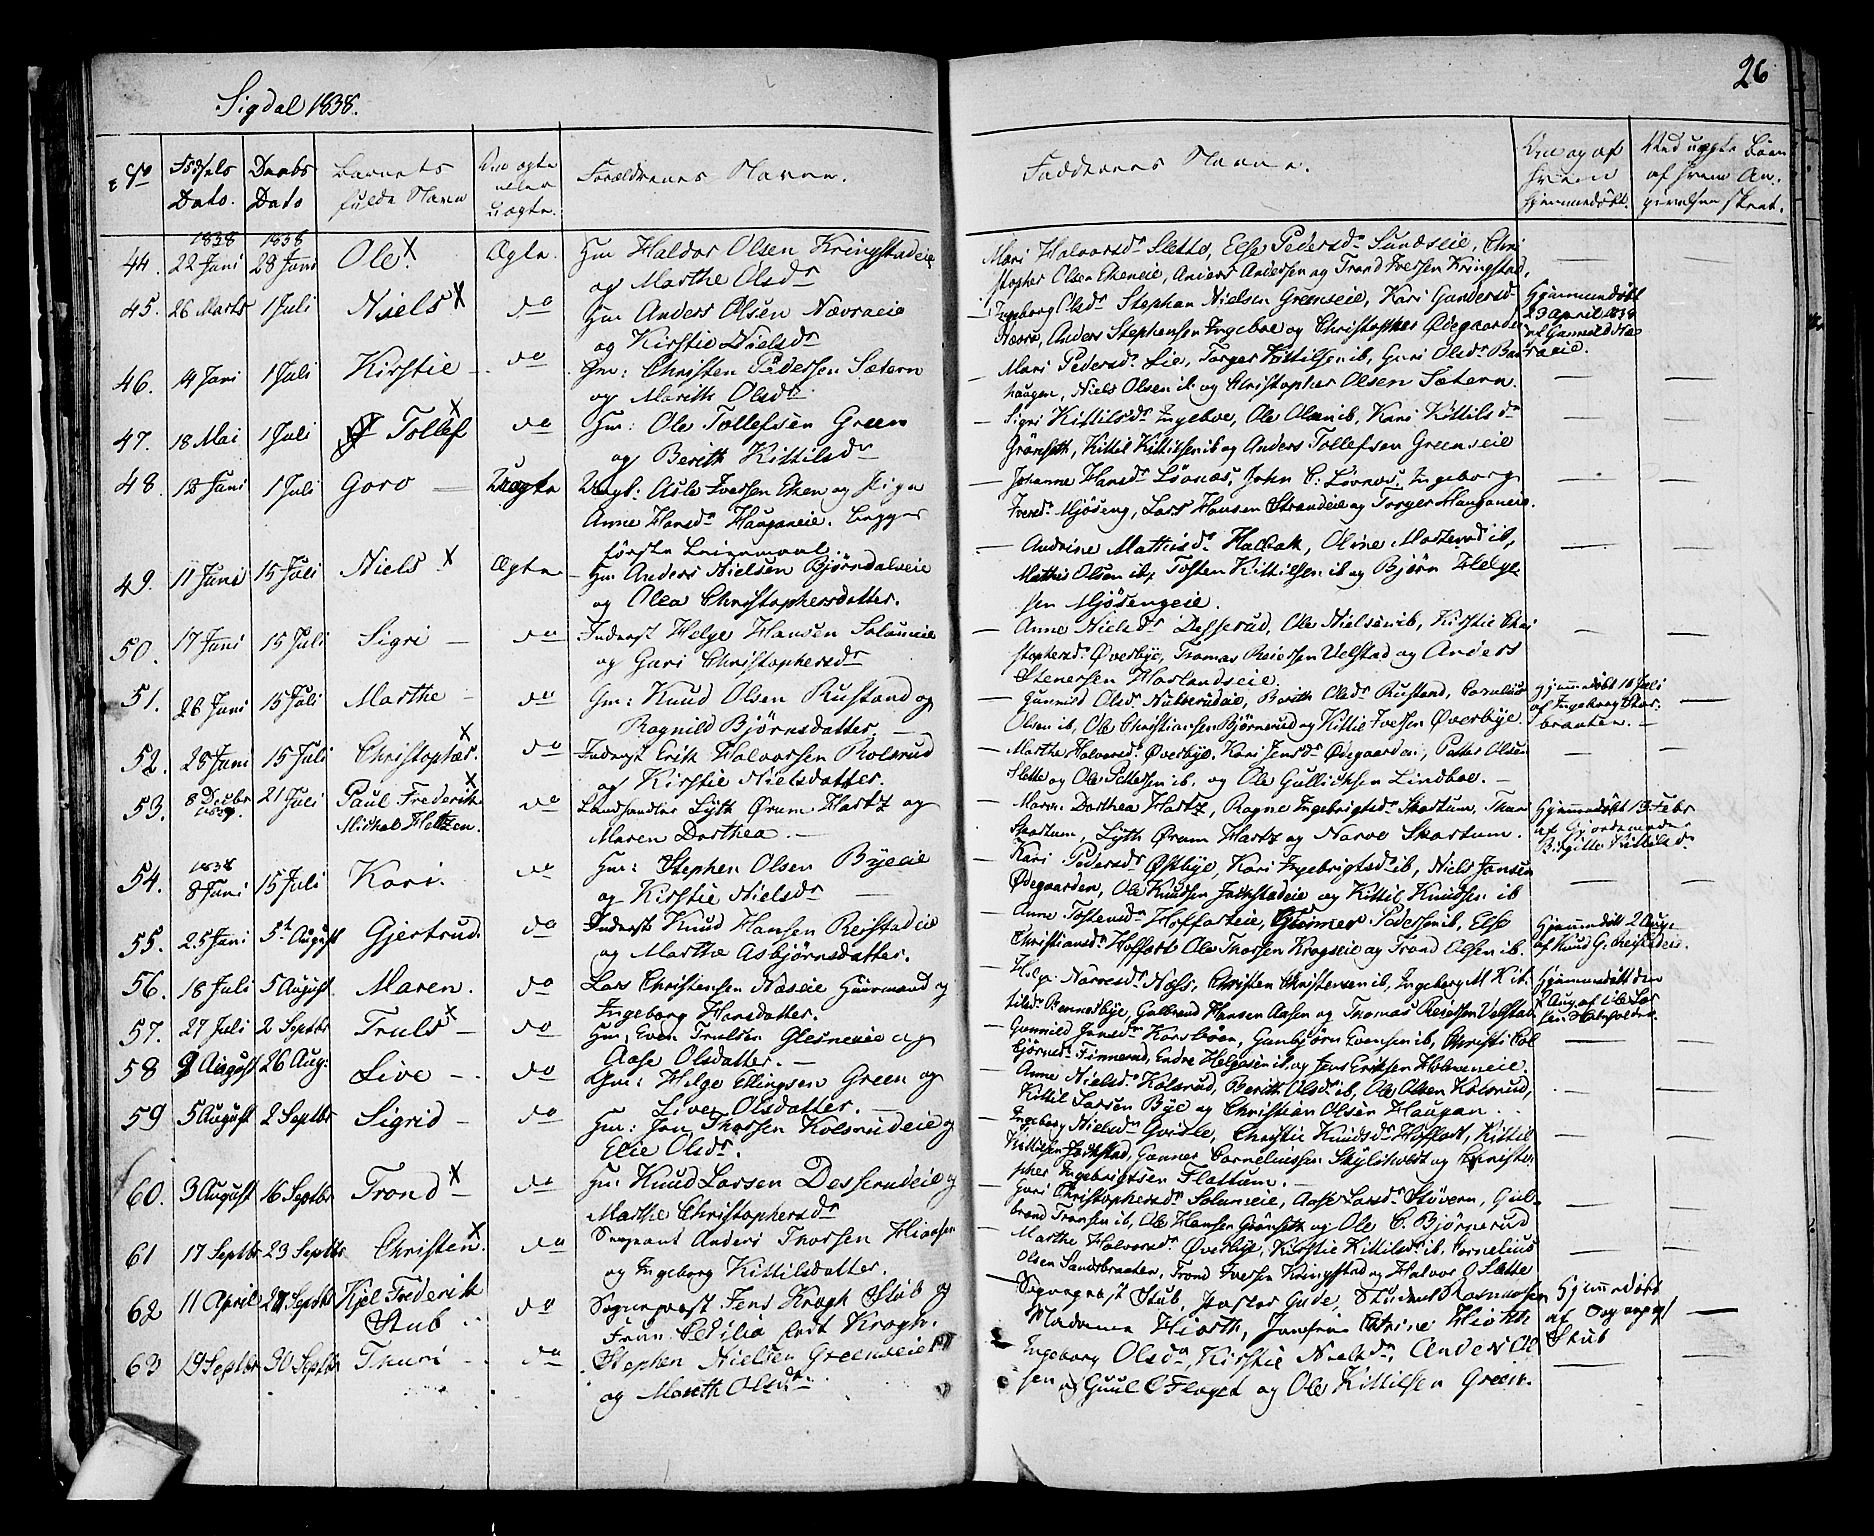 Sigdal 1838.
26
No
Fødsels Dato.
Daabs Dato
Barnets fulde Navn
Om ægte eller uægte.
Forældrenes Navne.
Faddernes Navne.
Om og af hvem hjemmedøbt.
Ved uægte Børn af hvem Angivelsen skeet.
44. 1838 22 Juni 1838 28 Juni Ole. x Ægte. Gm Haldor Olsen Kringstadeie
og Marthe Olsdr
Mari Halvorsdr Slette, Else Pedersdr Sundseie, Chri
stopher Olsen Ekeneie, Anders Andersen og Trond Iversen Kringstad,
45. 26 Marts 1 Juli Niels x do Gm Anders Olsen Nævraeie
og Kirstie Nielsdr
Ingeborg Olsdr Stephan Nielsen Greenseie, Kari Gundersd
Nævra, Anders Stephensen Ingeboe og Christopher Ødegaarden
Hjemmedøbt
23 April 1838
af Gunnild Næ
vraeie.
46. 14 Juni 1 Juli Kirstie - do Gm: Christen Pedersen Sætern
og Marith Olsdr
Mari Pedersdr Lie, Torger Kittilsen ib, Guri Olsdr Bak
haugen, Niels Olsen ib. og Christopher Olsen Sætern.
47. 18 Mai 1 Juli Tollef x do Gm: Ole Tollefsen Green
og Berith Kittilsdr
Sigri Kittilsdr Ingeboe, Ole Olsen ib, Kari Kittilsdr
Grønseth, Kittil Kittilsen ib og Anders Tollefsen Greenseie
48. 18 Juni 1 Juli Goro - Uægte Uægt: Asle Iversen Eken og Pige
Anne Hansdr Hauganeie. begges
første Leiermaal.
Johanne Hansdr Løvnæs, John C. Løvnæs, Ingeborg
Iversdr Mjøseng, Lars Hansen Strandeie og Torger Hauganeie.
49. 11 Juni 15 Juli Niels x Ægte Gm Anders Nielsen Bjørndalseie
og Olea Christophersdatter.
Andrine Mathisdr Holbak, Oline Mathisd ib,
Mathis Olsen ib, Tosten Kittilsen ib og Bjørn Helge
sen Mjøsengeie.
50. 17 Juni 15 Juli Sigri - do Inderst Helge Hansen Solumeie
og Guri Christophersdr
Anne Nielsdr Desserud, Ole Nielsen ib, Kirstie Chri
stophersdr Øverbye, Thomas Reiersen Velstad og Anders
Stenersen Haslandseie.
51. 26 Juni 15 Juli Marthe - do Gm: Knud Olsen Rustand og
Ragnild Bjørnsdatter
Gunnild Olsdr Nubberudeie, Berith Olsdr Rustand, Cornelius
Olsen ib, Ole Christiansen Bjørnerud og Kittil Iversen Øverbye.
Hjemmedøbt 10 Juli
af Ingeborg
braaten.
52. 28 Juni 15 Juli Christopher. x do Inderst Erik Halvorsen Kolsrud
og Kirstie Nielsdatter.
Marthe Halvorsdr Øverbye, Kari Jensdr Ødegaarden, Peder Olsen
Slette og Ole Pettersen ib, og Ole Gullicksen Lindboe.
53. 8 Decbr 1837. 21 Juli Paul Frederik x
Michal Heltzen. do Landhandler Lyth Ørum Hartz og
Maren Dorthea.
Maren Dorthea Hartz, Ragne Ingebrigtsdr Skartum, Thore
Skartum, Lyth Ørum Hartz og Narve Skartum.
Hjemmedøbt 13 Febr
af Gjordemoder
Birgitte Kittilsdr
54. 1838 8 Juni 15 Juli Kari. do Gm: Stephen Olsen Byeeie
og Kirstie Nielsdr
Kari Pedersdr Østbye, Kari Ingebrigtsdr ib, Niels Jansen
Ødegaarden, Ole Knudsen Jokstadeie og Kittil Knudsen ib
55. 25 Juni 5t August Gjertrud. do Inderst Knud Hansen Reistadeie
og Marthe Asbjørnsdatter.
Anne Tostensdr Hoffarteie, Gunner Pedersen ib, Else
Christiansdr Hoffart, Ole Thorsen Kragseie og Trond Olsen ib.
Hjemmedøbt 2 Aug.
af Knud G. Reistadeie.
56. 18 Juli 5 August Maren. do Lars Christensen Næseie Huusmand og
Ingeborg Hansdatter.
Helge Narvesdr Nøss, Christen Christensen ib, Ingeborg M Kit
tilsdr Bennesbye, Gulbrand Hansen Aasen og Thomas Reiersen Velstad
Hjemmedøbt den
2 Aug. af Ole Lar
sen
57. 27 Juli 2 Septbr Truls x - do Gm, Even Trulsen Glesneeie og
Aase Olsdatter.
Gunnild Jensdr Korsbøen, Gunbjørn Evensen ib, Christi Col
bjørnsdr Finnerud, Endre Helgesen ib og Jens Eriksen Holmeneie.
58 9 August 26 Aug: Live - do Gm: Helge Ellingsen Green og
Live Olsdatter.
Anne Nielsdr Kolsrud, Berith Olsdr ib, Ole Olsen Kolsrud,
Kittil Larsen Bye og Christian Olsen Haugan.
59 5 August 2 Septbr Sigrid - do Gm: Jon Thorsen Kolsrudeie og
Elie Olsdr.
Ingeborg Nielsdr Gvisle, Christie Knudsdr Hoffart, Kittil
Kittilsen Jokstad, Gunner Corneliussen Skylsholdt og Christo
pher Ingebrigtsen Flattum.
60. 3 August 16 Septbr Trond x - do Gm: Knud Larsen Desserudeie og
Marthe Christophersdr
Guri Christophersdr Solumeie, Aase Larsdr Støvern, Gul-
brand Tronsen ib, Ole Hansen Grønseth og Ole C. Bjørnerud
61 17 Septbr 23 Septbr Christen. x do Sergeant Anders Thorsen Hiaasen
og Ingeborg Kittilsdatter.
Marthe Halvorsdr Øverbye, Kirstie Kittilsdr ib, Cornelius
Olsen Sandsbraaten, Trond Iversen Kringstad og Halvor O Slette
62 11 April 27 Septbr Kjel Frederik
Stub do Sogneprest Jens Krogh Stub og
Frue Cecilia født Krogh.
Sogneprest Stub, Pastor Gude, Student Rasmussen
Madame Hiorth, Jomfrue Catrine Hiorth
Hjemmedøbt
af Sogneprest
Stub
63 19 Septbr 30 Septbr Thuri - do Stephen Nielsen Greenseie
og Marith Olsdr.
Ingeborg Olsdr, Kirstie Nielsdr, Anders Ol
sen og Guul O Flaget og Ole Kittilsen Green.